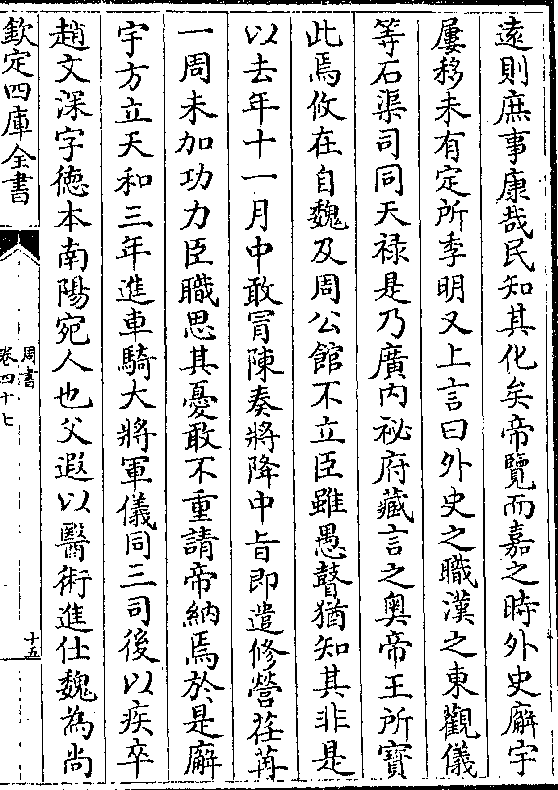 遠則庶事康哉民知其化矣帝覽而嘉之時外史廨宇
屢移未有定所季明又上言曰外史之職漢之東觀儀
等石渠司同天禄是乃廣内祕府藏言之奥帝王所寶
此焉攸在自魏及周公館不立臣雖愚瞽猶知其非是
以去年十一月中敢冐陳奏將降中旨即遣修營荏苒
一周未加功力臣職思其憂敢不重請帝納焉於是廨
宇方立天和三年進車騎大將軍儀同三司後以疾卒
趙文深字德本南陽宛人也父遐以醫術進仕魏為尚
欽定四庫全書
周書
卷四十七
十五